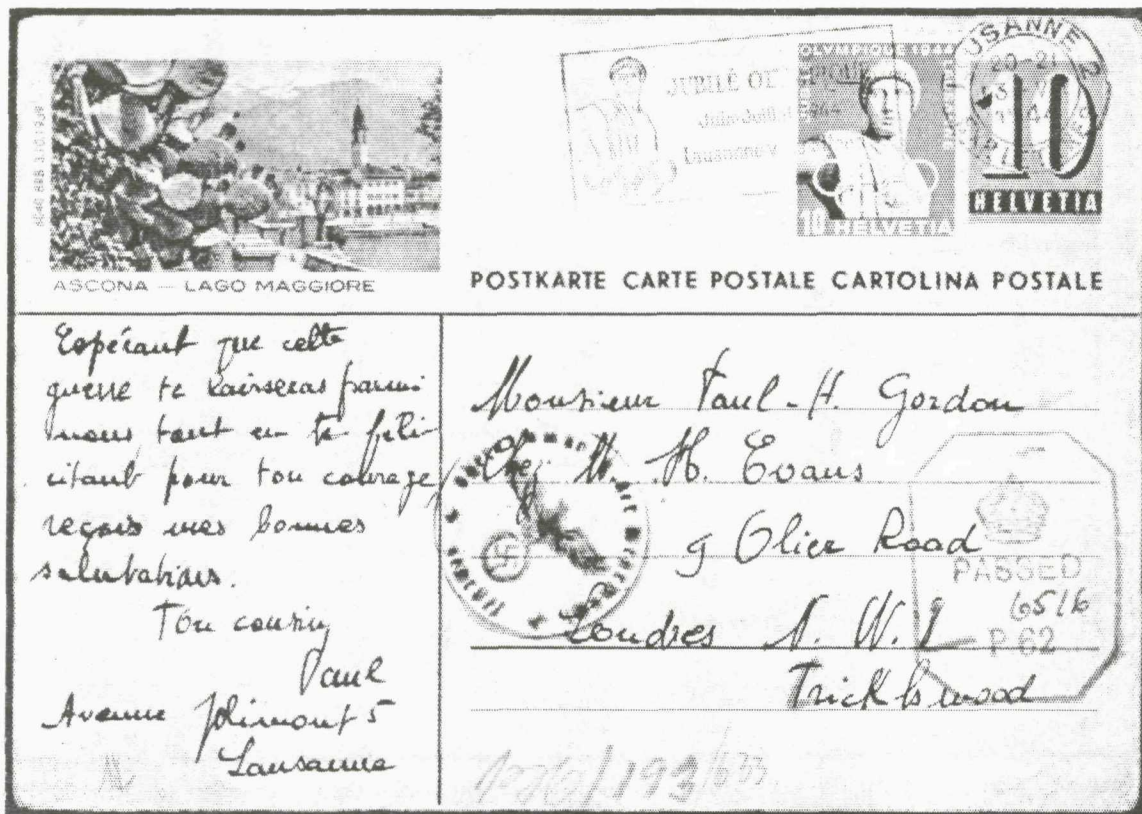 JUBILÉ OLYMPIQUE
Lausanne
OLYMPIQUE
10 HELVETIA
LAUSANNE 2
20-21
10
HELVETIA
ASCONA — LAGO MAGGIORE
POSTKARTE CARTE POSTALE CARTOLINA POSTALE
Espérant que cette
guerre te laisseras parmi
nous tout en te féli-
citant pour ton courage,
reçois mes bonnes
salutations.
Ton cousin
Paul
Avenue Jolimont 5
Lausanne
Monsieur Paul-H. Gordon
Chez M. H. Evans
9 Olice Road
Londres N. W. 2
Tricklswood
PASSED
6516
P 62